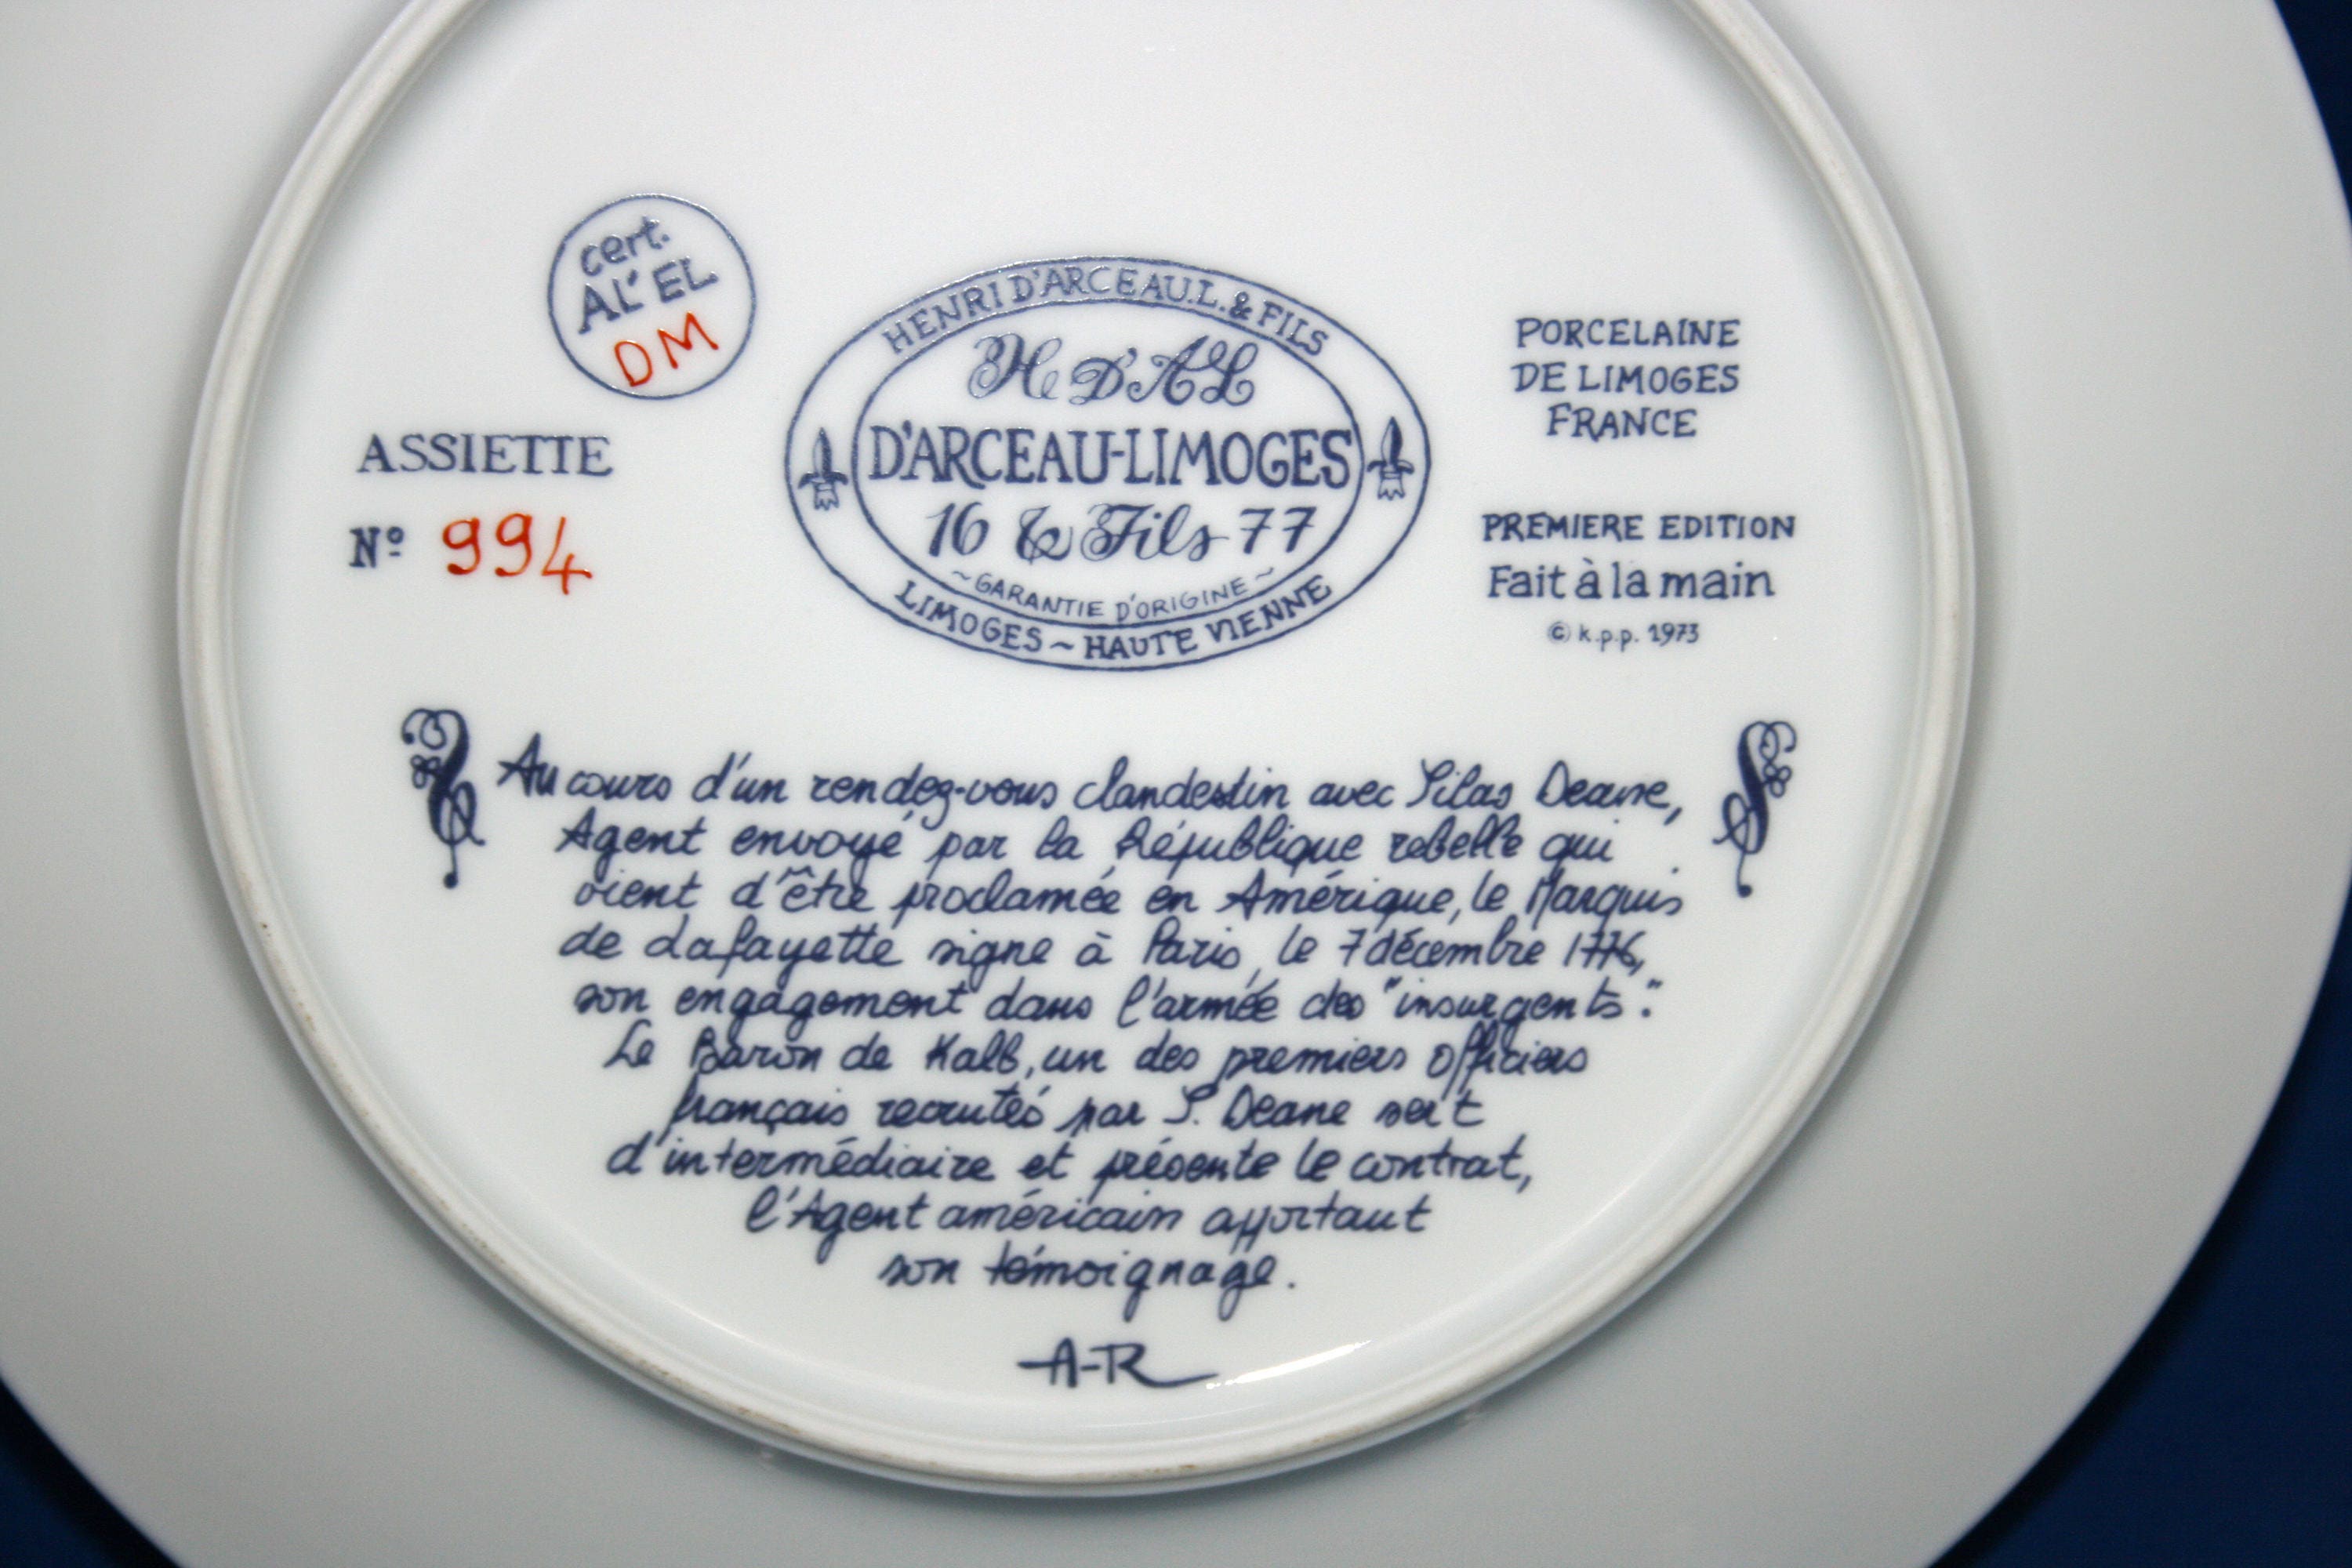 cert.
AL' EL.
DM
ASSIETTE
Nº 994
HENRI D'ARCEAU.L. & FILS
H D'AL
D'ARCEAU-LIMOGES
16 & Fils 77
~GARANTIE D'ORIGINE~
LIMOGES ~ HAUTE VIENNE
PORCELAINE
DE LIMOGES
FRANCE
PREMIERE EDITION
Fait à la main
© k.p.p. 1973
Au cours d'un rendez-vous clandestin avec Silas Deane,
Agent envoyé par la République rebelle qui
vient d'être proclamée en Amérique, le Marquis
de Lafayette signe à Paris, le 7 décembre 1776,
son engagement dans l'armée des "insurgents".
Le Baron de Kalb, un des premiers officiers
français recrutés par S. Deane sert
d'intermédiaire et présente le contrat,
l'Agent américain apportant
son témoignage.
A-R